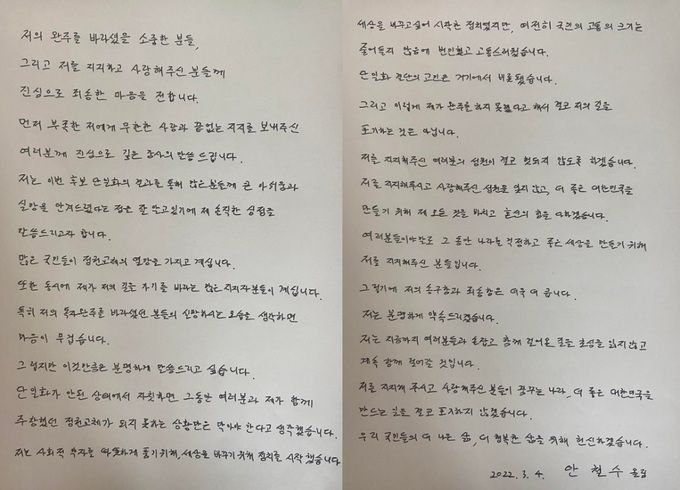 저의 완주를 바라셨을 소중한 분들,
그리고 저를 지지하고 사랑해주신 분들께
진심으로 죄송한 마음을 전합니다.
먼저 부족한 저에게 무한한 사랑과 끝없는 지지를 보내주신
여러분께 진심으로 깊은 감사의 말씀 드립니다.
저는 이번 후보 단일화의 결과를 통해 많은 분들께 큰 아쉬움과
실망을 안겨드렸다는 점을 잘 알고있기에 제 솔직한 심정을
말씀드리고자 합니다.
많은 국민들이 정권교체의 열망을 가지고 계십니다.
또한 동시에 제가 저의 길을 가기를 바라는 많은 지지자분들이 계십니다.
특히 저의 독자완주를 바라셨던 분들의 실망하시는 모습을 생각하면
마음이 무겁습니다.
그렇지만 이것만큼은 분명하게 말씀드리고 싶습니다.
단일화가 안된 상태에서 자칫하면 그동안 여러분과 제가 함께
주장했던 정권교체가 되지 못하는 상황만은 막아야 한다고 생각했습니다.
저는 사회적 약자를 따뜻하게 품기위해, 세상을 바꾸기 위해 정치를 시작했습니다
세상을 바꾸고 싶어 시작한 정치였지만, 여전히 국민의 고통의 크기는
줄어들지 않음에 번민했고 고통스러웠습니다.
단일화 결단의 고민은 거기에서 비롯됐습니다.
그리고 이렇게 제가 완주를 하지 못했다고 해서 결코 저의 길을
포기하는 것은 아닙니다.
저를 지지해주신 여러분의 심원이 결코 헛되지 않도록 하겠습니다.
저를 지지해주시고 사랑해주신 심원을 잊지 않고, 더 좋은 대한민국을
만들기 위해 제 모든 것을 바치고 혼신의 힘을 다하겠습니다.
여러분들이야말로 그 동안 나라를 걱정하고 좋은 세상을 만들기 위해
저를 지지해주신 분들입니다.
그렇기에 저의 송구함과 죄송함은 더욱 더 큽니다.
저는 분명하게 약속드리겠습니다.
저는 지금까지 여러분들과 손잡고 함께 걸어온 길을 초심을 잃지않고
계속 함께 걸어갈 것입니다.
저를 지지해 주시고 사랑해주신 분들이 꿈꾸는 나라, 더 좋은 대한민국을
만드는 일을 결코 포기하지 않겠습니다.
우리 국민들의 더 나은 삶, 더 행복한 삶을 위해 헌신하겠습니다.
2022. 3. 4. 안 철 수 올림